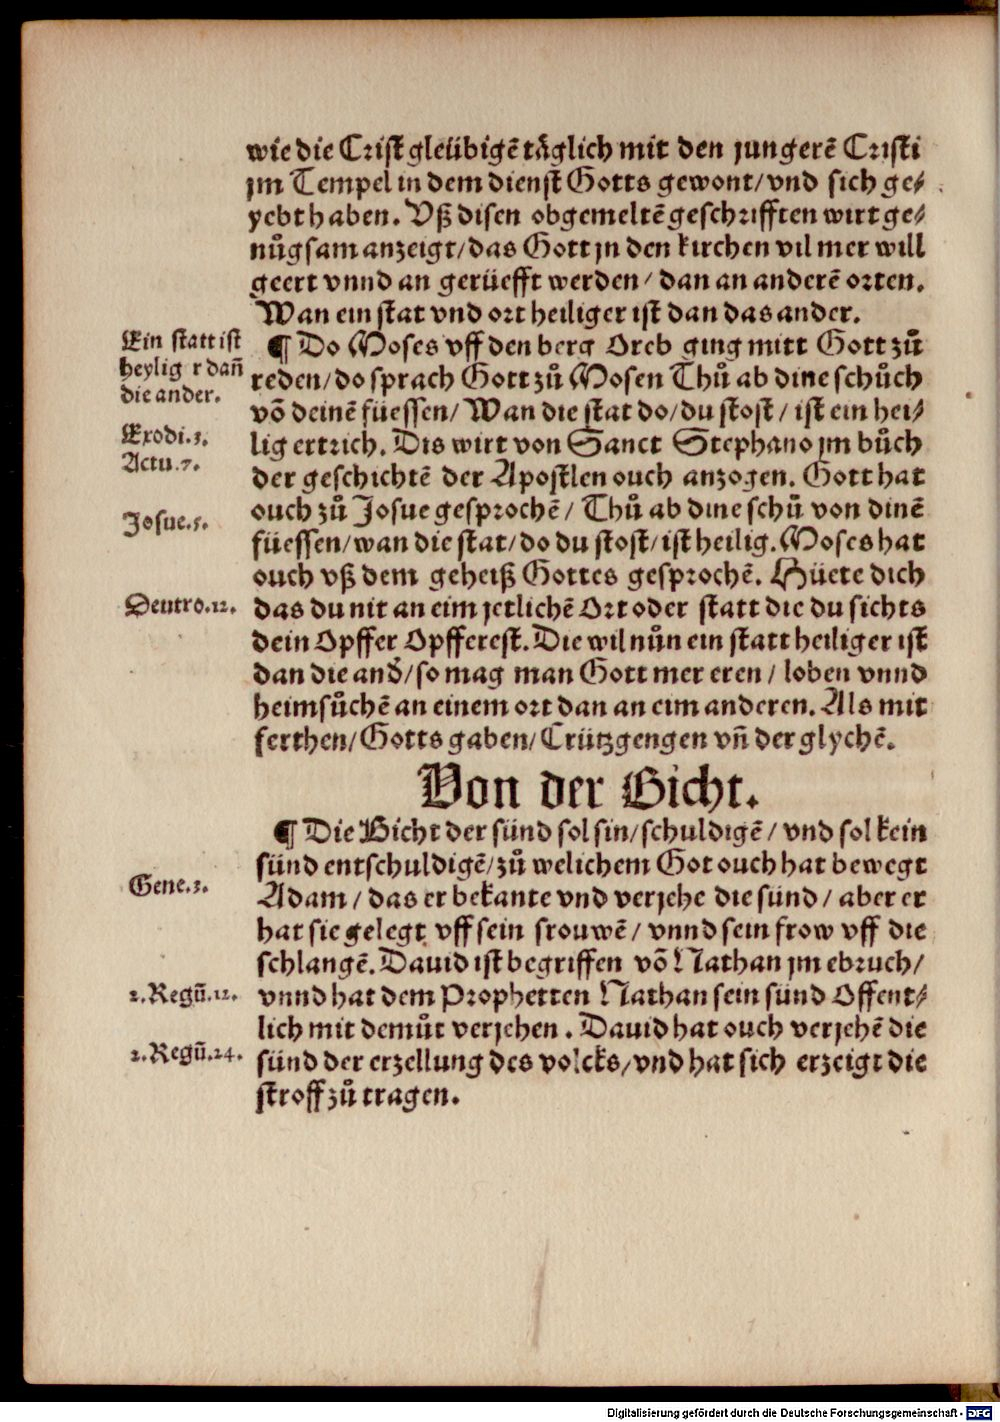 wie die Cristgleübigē täglich mit den jungerē Cristi
jm Tempel in dem dienst Gotts gewont/vnd sich ge⸗
yebt haben. Vß disen obgemeltē geschrifften wirt ge⸗
nůgsam anzeigt/das Gott jn den kirchen vil mer will
geert vnnd an gerüefft werden/ dan an anderē orten.
Wan ein stat vnd ort heiliger ist dan das ander.
Ein statt ist
heylig r dañ
die ander.
¶ Do Moses vff den berg Oreb ging mitt Gott zů
reden/do sprach Gott zů Mosen Thů ab dine schůch
vō deinē füessen/ Wan die stat do/du stost/ ist ein hei⸗
Exodi.3.
lig ertrich. Dis wirt von Sanct Stephano jm bůch
Actu.7.
der geschichtē der Apostlen ouch anzogen. Gott hat
Josue.5.
ouch zů Josue gesprochē/ Thů ab dine schů von dinē
füessen/wan die stat/do du stost/ist heilig. Moses hat
ouch vß dem geheiß Gottes gesprochē. Hüete dich
Deutro.12.
das du nit an eim jetlichē Ort oder statt die du sichts
dein Opffer Opfferest. Die wil nůn ein statt heiliger ist
dan die and̄/so mag man Gott mer eren/ loben vnnd
heimsůchē an einem ort dan an eim anderen. Als mit
ferthen/Gotts gaben/Crützgengen vñ der glychē.
Von der Bicht.
¶ Die Bicht der sünd sol sin/schuldigē/ vnd sol kein
sünd entschuldigē/zů welichem Got ouch hat bewegt
Gene.3.
Adam/ das er bekante vnd verjehe die sünd/ aber er
hat sie gelegt vff sein frouwē/ vnnd sein frow vff die
schlangē. Dauid ist begriffen vō Nathan jm ebruch/
2.Regū.12.
vnnd hat dem Prophetten Nathan sein sünd Offent⸗
lich mit demůt verjehen. Dauid hat ouch verjehē die
2.Regū.24.
sünd der erzellung des volcks/vnd hat sich erzeigt die
stroff zů tragen.
Digitalisierung gefördert durch die Deutsche Forschungsgemeinschaft - DFG